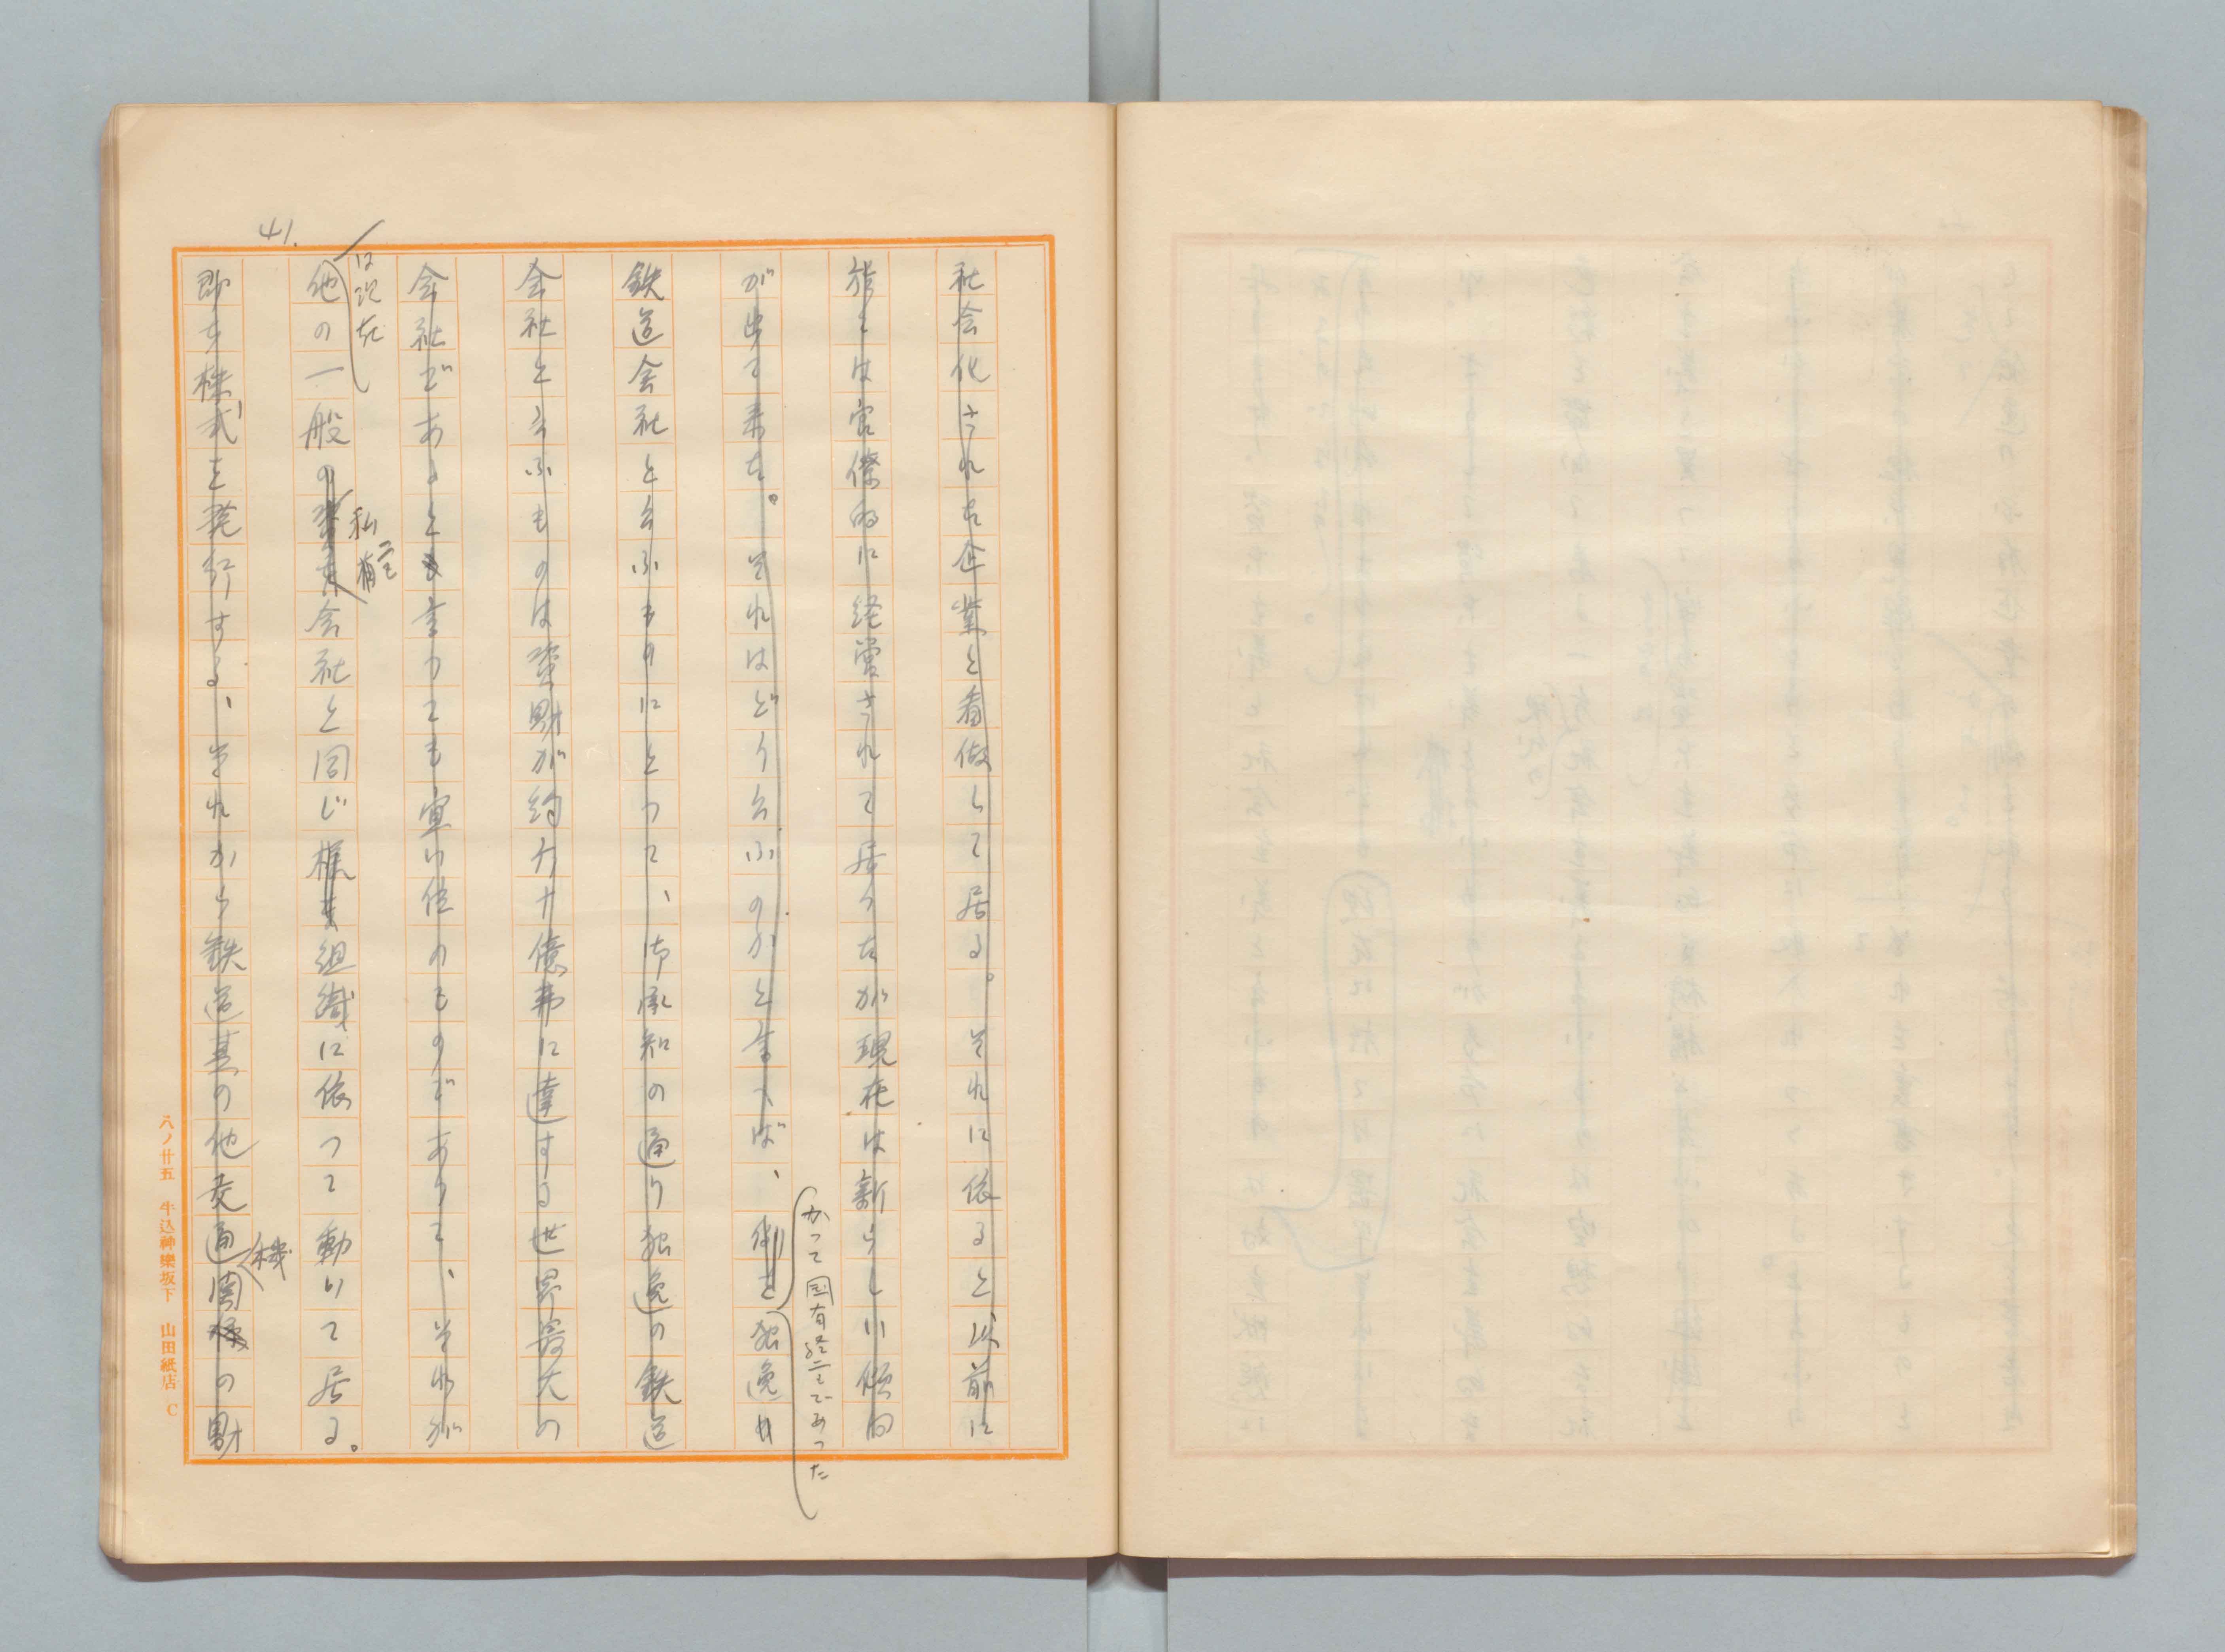 社会化された企業と看做して居る。それに依ると以前に
於ては官僚的に経営されて居つたが現在は新らしい傾向
が出て来た。それはどう云ふのかと言へば、を独逸の
かつて国有経営であつた
鉄道会社と云ふものにとつて、御承知の通り独逸の鉄道
会社と云ふものは資財が約廿億弗に達する世界最大の
会社であるとも言つても宜い位のものでありて、それが
は現在
他の一般の会社と同じ様な組織に依つて動いて居る。
私有
41.
即ち株式を発行する、それから鉄道其の他交通関係の財
機
八ノ廿五 牛込神樂坂下 山田紙店 C